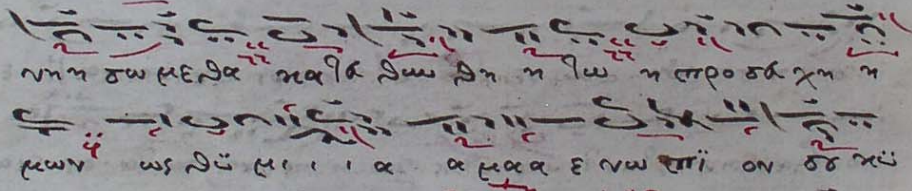 νηη σω με θα κα τευ θυν θη η τω η προ σευ χη η
μων ως θϋ μι ι ι α α μα α ε νω πϊ ον σου κϋ